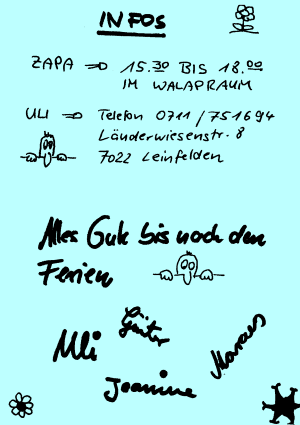 INFOS
ZAPA => 15.30 BIS 18.00
IM WALAPRAUM
ULI => Telefon 0711/751694
Länderwiesenstr. 8
7022 Leinfelden
Alles Gute bis nach den
Ferien
Günter
Uli
Marcus
Joanine